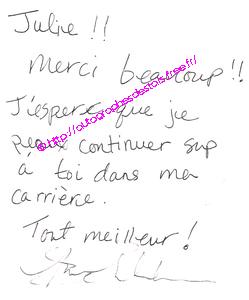 Julie !!
merci beaucoup !!
J'espere que je
peux continuer sup
à toi dans ma
carrièrce.
Tout meilleur !
©http://autographesdestars.free.fr/